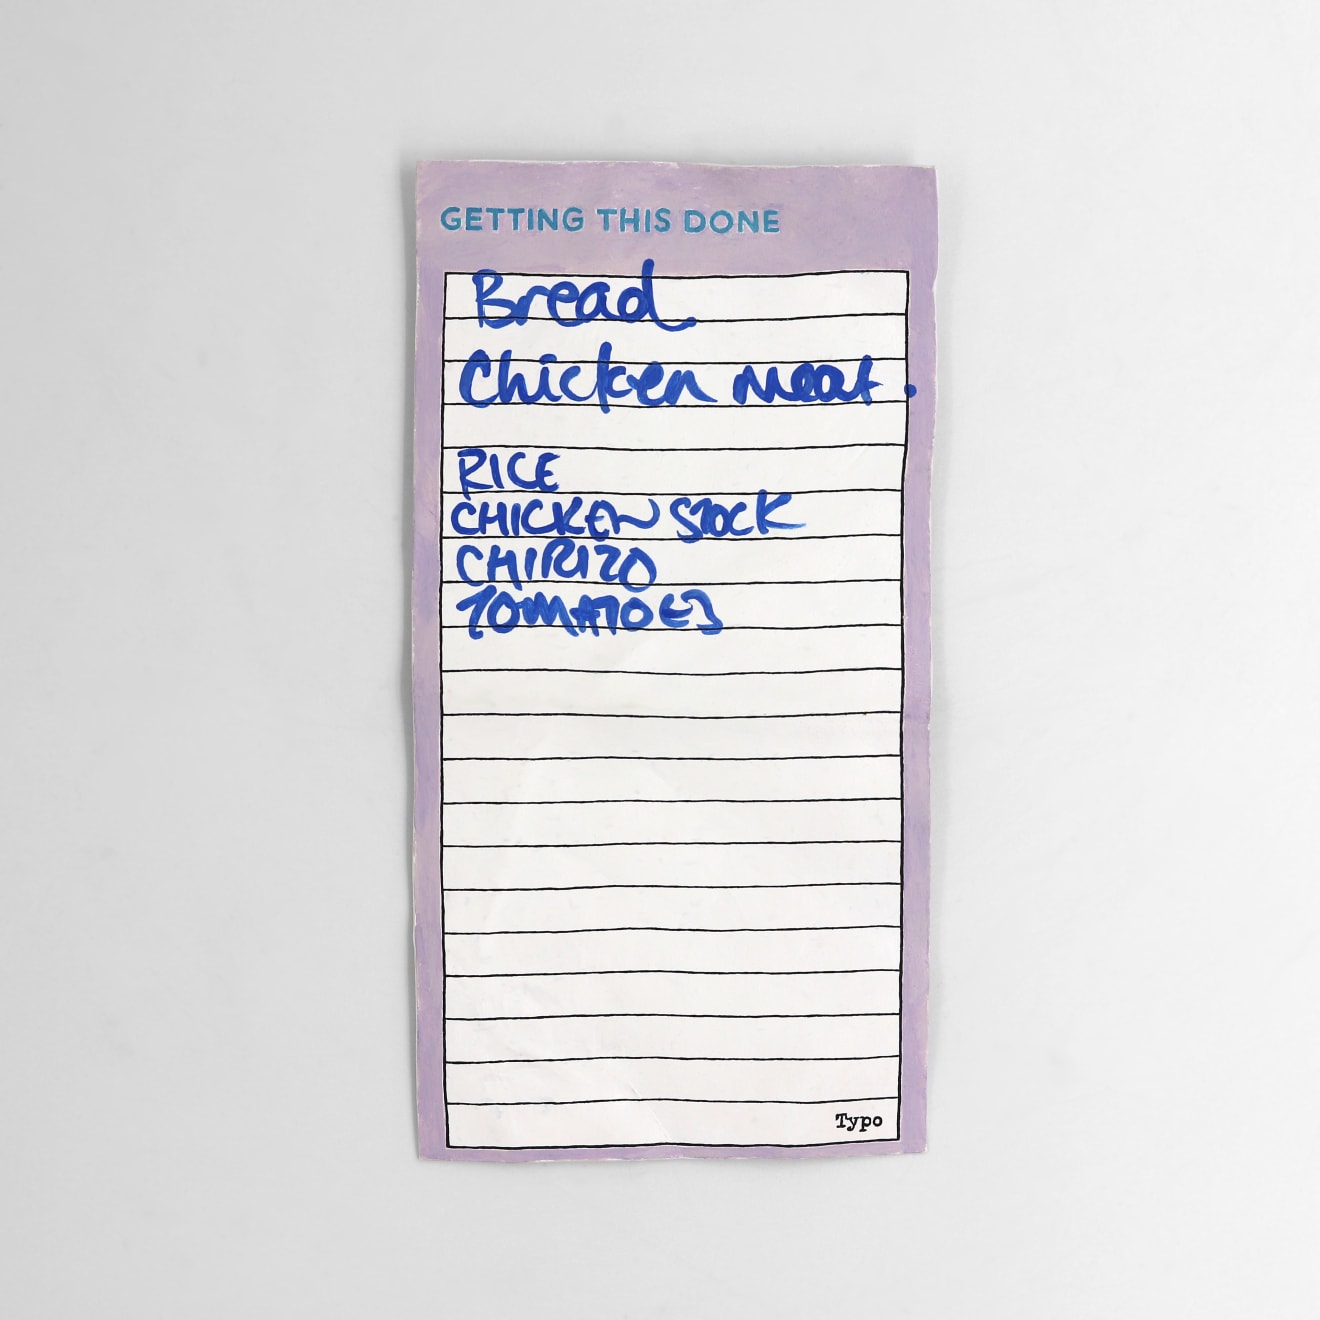 GETTING THIS DONE
Bread
Chicken meat.
RICE
CHICKEN STOCK
CHIRIZO
TOMATOES
Typo